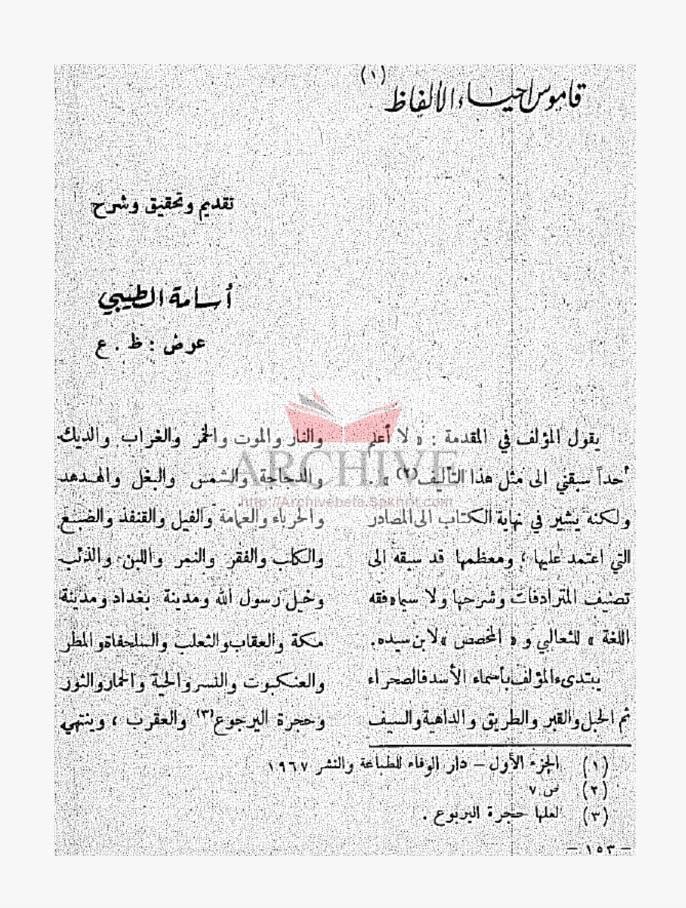 قاموس احياء الألفاظ (١)
تقديم وتحقيق وشرح
أسامة الطيبي
عوض : ظ . ع
يقول المؤلف في المقدمة : « لا أعلم
أحداً سبقني الى مثل هذا التأليف(٢) » .
ولكنه يشير في نهاية الكتاب الى المصادر
التي اعتمد عليها ، ومعظمها قد سبقه الى
تصنيف المترادفات وشرحها ولا سيما « فقه
اللغة » للثعالبي و « المخصص » لابن سيده.
يبتدىء المؤلف بأسماء الأسد فالصحراء
ثم الجبل والقبر والطريق والداهية والسيف
والنار والموت والخمر والغراب والديك
والدجاجة والشمس والبغل والهدهد
والحرباء والعمامة والفيل والقنفذ والضبع
والكلب والفقر والنمر واللبن والذئب
وخيل رسول الله ومدينة بغداد ومدينة
مكة والعقاب والثعلب والسلحفاة والمطر
والعنكبوت والنسر والحية والحمار والثور
وحجرة اليرجوع(٣) والعقرب ، وينتهي
(١) الجزء الأول – دار الوفاء للطباعة والنشر ١٩٦٧
(٢) ص ٧
(٣) لعلها حجرة اليربوع .
– ١٥٣ –
ARCHIVE
http://Archivebeta.Sakhrit.com